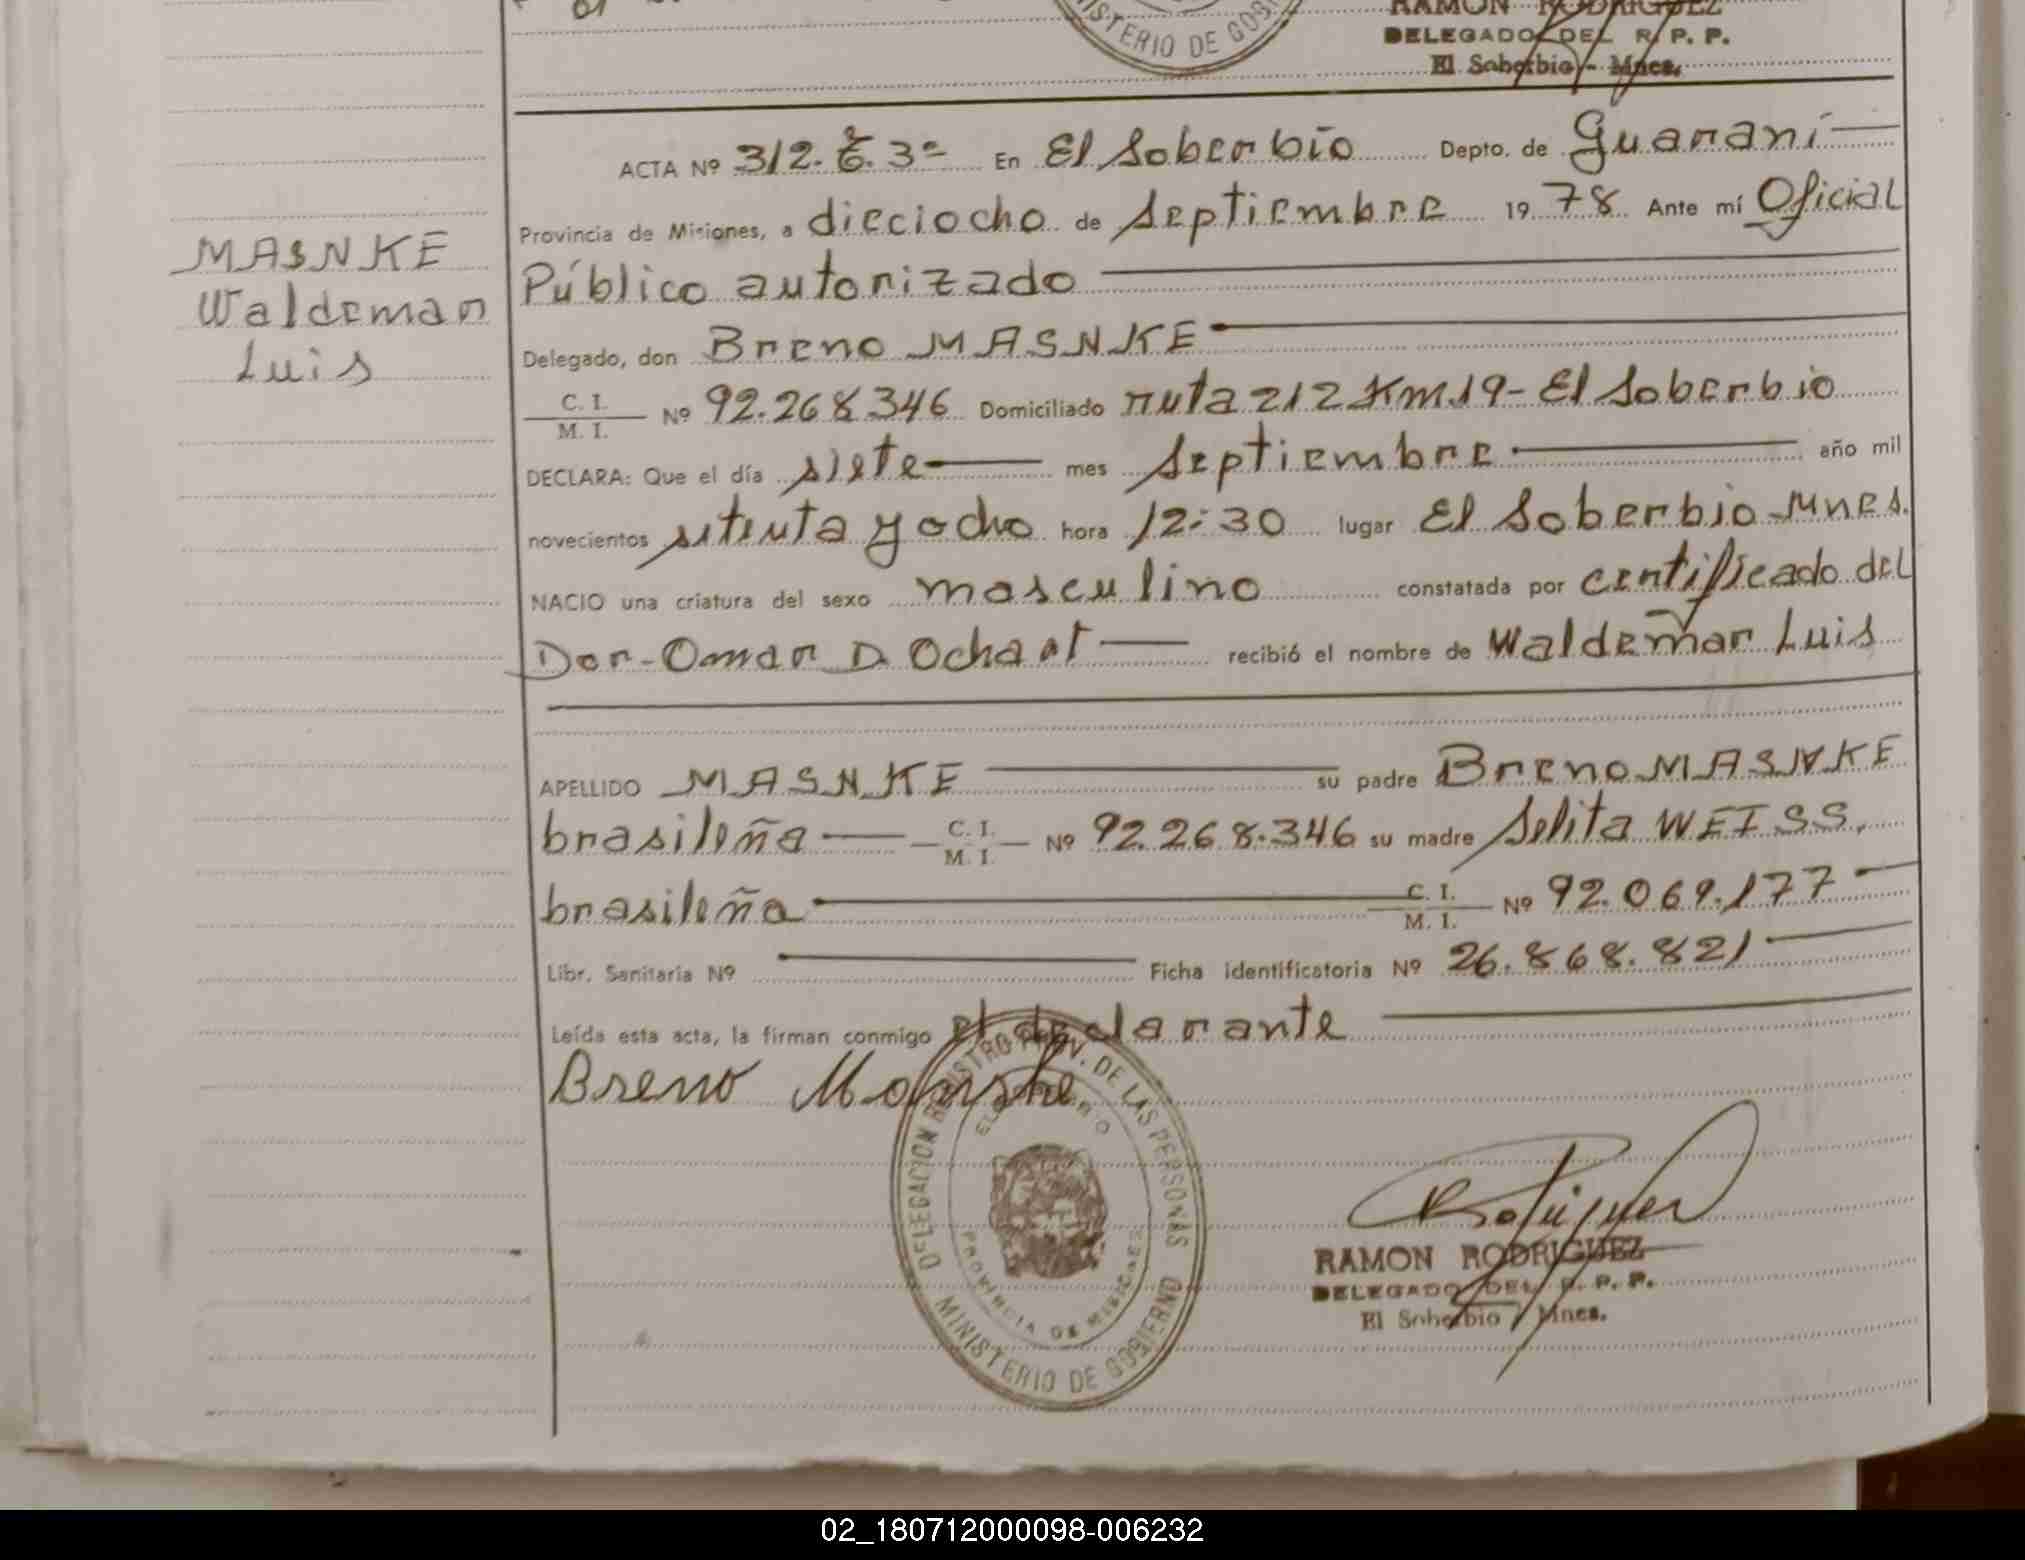 RAMON RODRIGUEZ
MINISTERIO DE GOBI
DELEGADO DEL R. P. P.
El Soberbio - Mnes.
ACTA Nº 312. 3º En El Soberbio Depto. de Guaraní
Provincia de Misiones, a dieciocho de Septiembre 1978 Ante mí Oficial
Público autorizado
MASNKE
Waldemar
Luis
Delegado, don Breno MASNKE
C. I.
M. I. Nº 92.268.346 Domiciliado ruta 212 Km.19 - El Soberbio
DECLARA: Que el día siete mes Septiembre año mil
novecientos setenta y ocho hora 12:30 lugar El Soberbio Mnes.
NACIO una criatura del sexo masculino constatada por certificado del
Dor. Omar D. Ochaat recibió el nombre de Waldemar Luis
APELLIDO MASNKE su padre Breno MASNKE
brasileña C. I. M. I. Nº 92.268.346 su madre Selita WEISS.
brasileña C. I. M. I. Nº 92.069.177
Libr. Sanitaria Nº Ficha identificatoria Nº 26.868.821
Leída esta acta, la firman conmigo el declarante
Breno Masnke
DELEGACION REGISTRO PROV. DE LAS PERSONAS
EL SOBERBIO
PROVINCIA DE MISIONES
MINISTERIO DE GOBIERNO
Rodriguez
RAMON RODRIGUEZ
DELEGADO DEL R. P. P.
El Soberbio - Mnes.
02_180712000098-006232